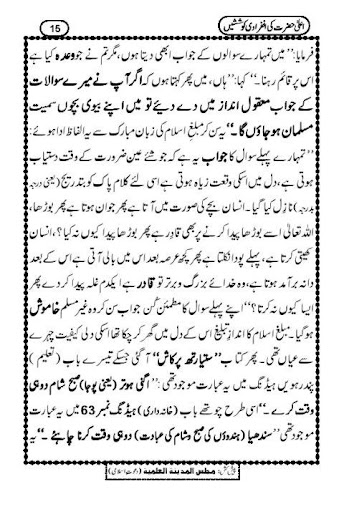 اعلیٰ حضرت کی انفرادی کوششیں
15
فرمایا: ’’میں تمہارے سوالوں کے جواب ابھی دیتا ہوں، مگر تم نے جو وعدہ کیا ہے
اس پر قائم رہنا۔‘‘ کہا: ’’ہاں، میں پھر کہتا ہوں کہ اگر آپ نے میرے سوالات
کے جواب معقول انداز میں دے دیئے تو میں اپنے بیوی بچوں سمیت
مسلمان ہو جاؤں گا۔‘‘ یہ سن کر مبلغ اسلام کی زبان مبارک سے یہ الفاظ ادا ہوئے:
’’تمہارے پہلے سوال کا جواب یہ ہے کہ جو شئے عین ضرورت کے وقت دستیاب
ہوتی ہے، دل میں اسکی وقعت زیادہ ہوتی ہے اسی لئے کلام پاک کو بتدریج (یعنی درجہ
بدرجہ) نازل کیا گیا۔ انسان بچے کی صورت میں آتا ہے پھر جوان ہوتا ہے پھر بوڑھا،
اللہ تعالیٰ اسے بوڑھا پیدا کرنے پر بھی قادر ہے پھر بوڑھا پیدا کیوں نہ کیا؟، انسان
کھیتی کرتا ہے، پہلے پودا نکلتا ہے پھر کچھ عرصہ بعد اس میں بالی آتی ہے اس کے بعد
دانہ برآمد ہوتا ہے، وہ خدائے بزرگ و برتر تو قادر ہے ایکدم غلہ پیدا کر دے پھر
ایسا کیوں نہ کرتا؟‘‘ اپنے پہلے سوال کا مطمئن کُن جواب سن کر وہ غیر مسلم خاموش
ہو گیا۔ مبلغ اسلام کا انداز تبلیغ اس کے دل میں گھر کر چکا تھا اسکی دلی کیفیت چہرے
سے عیاں تھی۔ پھر کتاب ’’ستیارتھ پرکاش‘‘ آ گئی جسکے تیسرے باب (تعلیم)
پندرھویں ہیڈنگ میں یہ عبارت موجود تھی: ’’اگنی ہوتر (یعنی پوجا) صبح شام دو ہی
وقت کرے۔‘‘ اسی طرح چوتھے باب (خانہ داری) ہیڈنگ نمبر 63 میں یہ عبارت
موجود تھی ’’سندھیا (ہندوؤں کی صبح و شام کی عبادت) دو ہی وقت کرنا چاہئے۔‘‘ یہ
پیش کش: مجلس المدینة العلمیة (دعوت اسلامی)